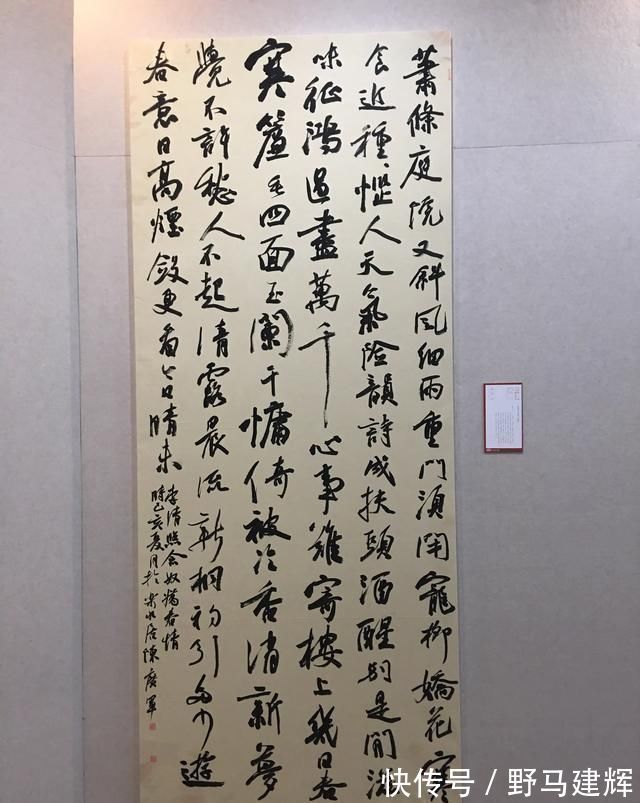 蕭條庭院又斜風細雨重門須閉寵柳嬌花寒
食近種〻惱人天氣險韻詩成扶頭酒醒別是閒滋
味征鴻過盡萬千心事難寄樓上幾日春
寒簾垂四面玉闌干慵倚被冷香消新夢
覺不許愁人不起清露晨流新桐初引多少遊
春意日高煙斂更看今日晴未
李清照念奴嬌春情
時己亥夏月於居陳廣軍
快传号 / 野马建辉